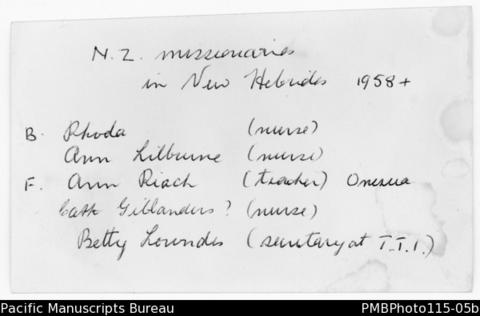 N.Z. missionaries
in New Hebrides 1958+
B. Rhoda (nurse)
Ann Lilburne (nurse)
F. Ann Riach (teacher) Onesua
Cath Gillanders? (nurse)
Betty Lowndes (secretary at T.T.I.)
Pacific Manuscripts Bureau PMBPhoto115-05b